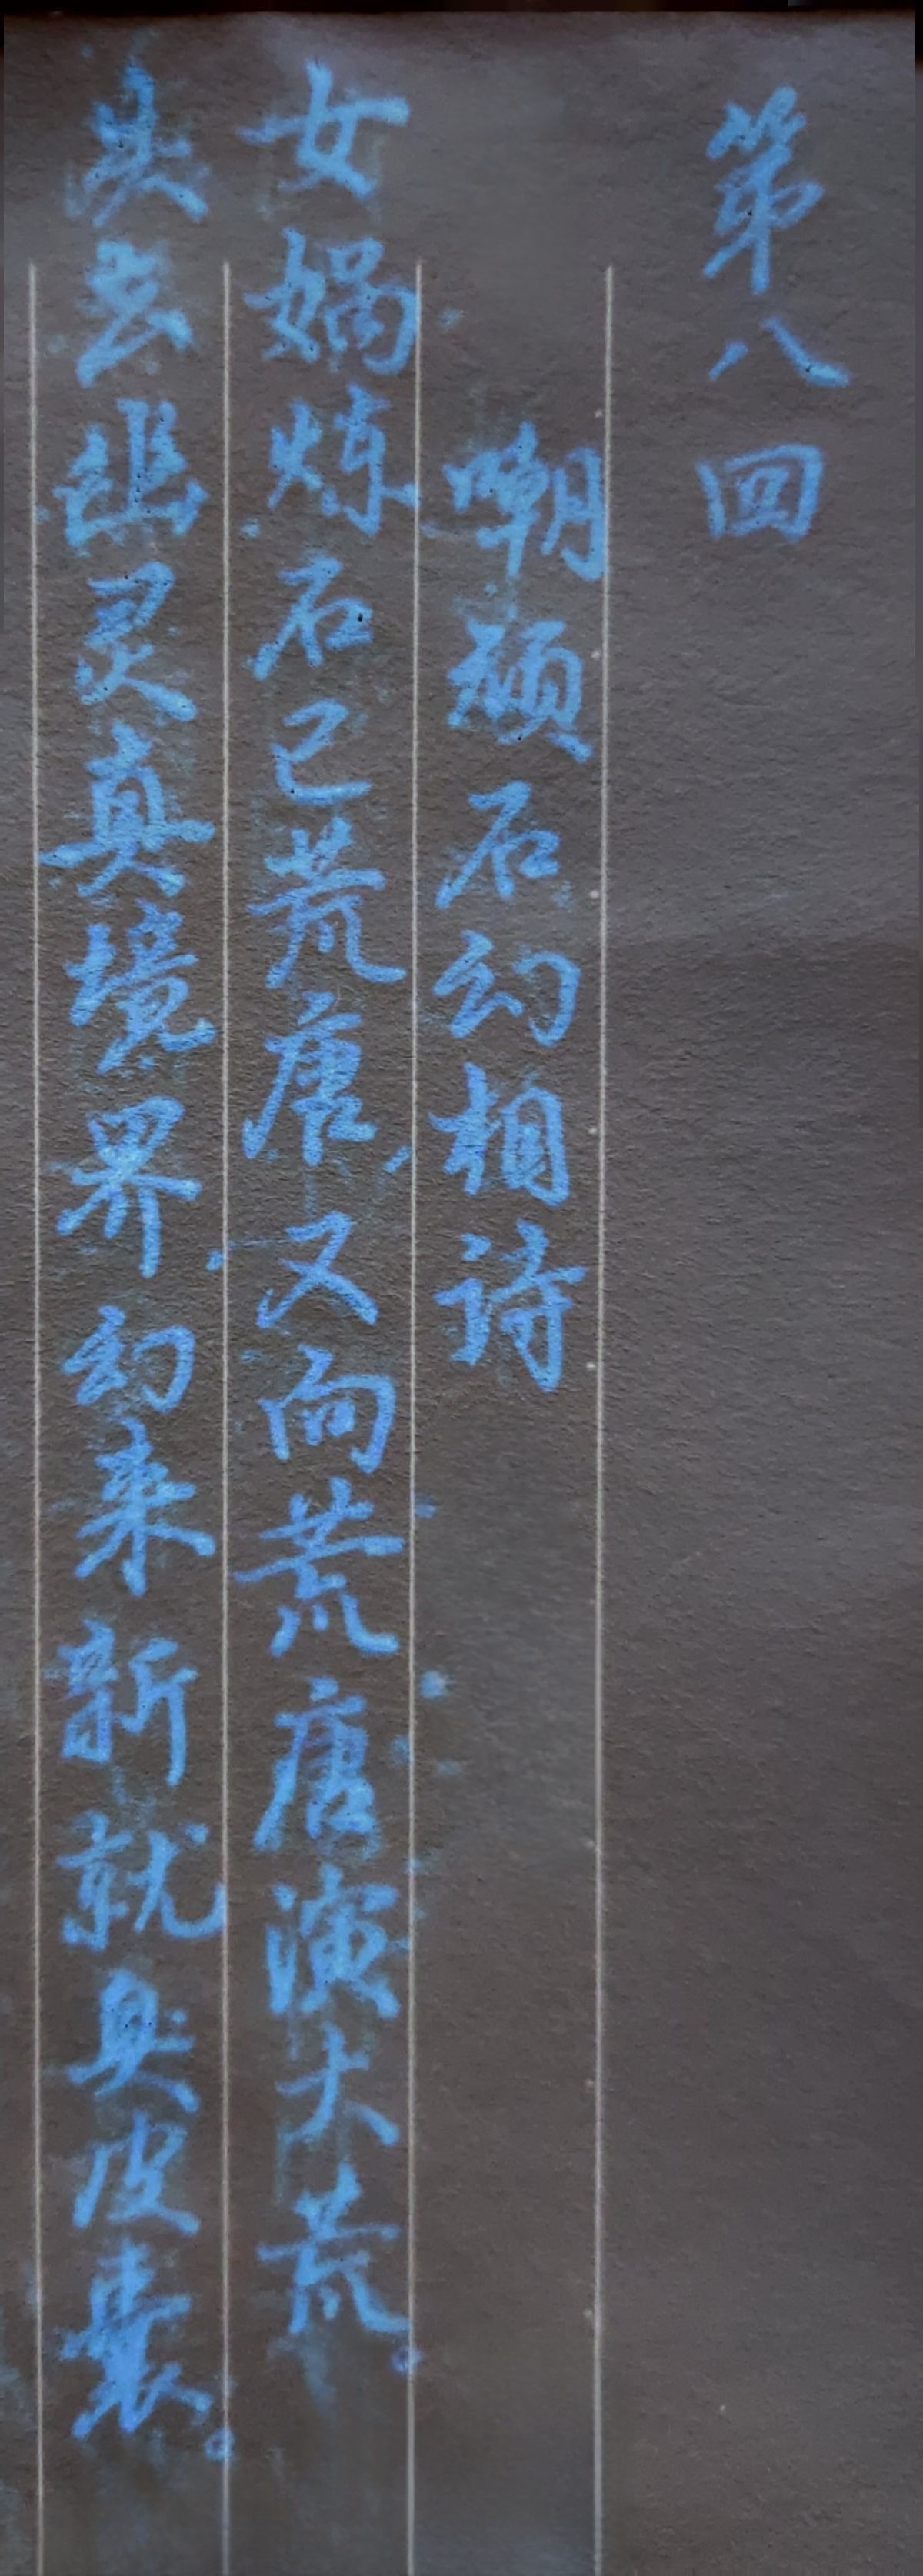 第八回
嘲顽石幻相诗
女娲炼石已荒唐,又向荒唐演大荒。
失去幽灵真境界,幻来新就臭皮囊。